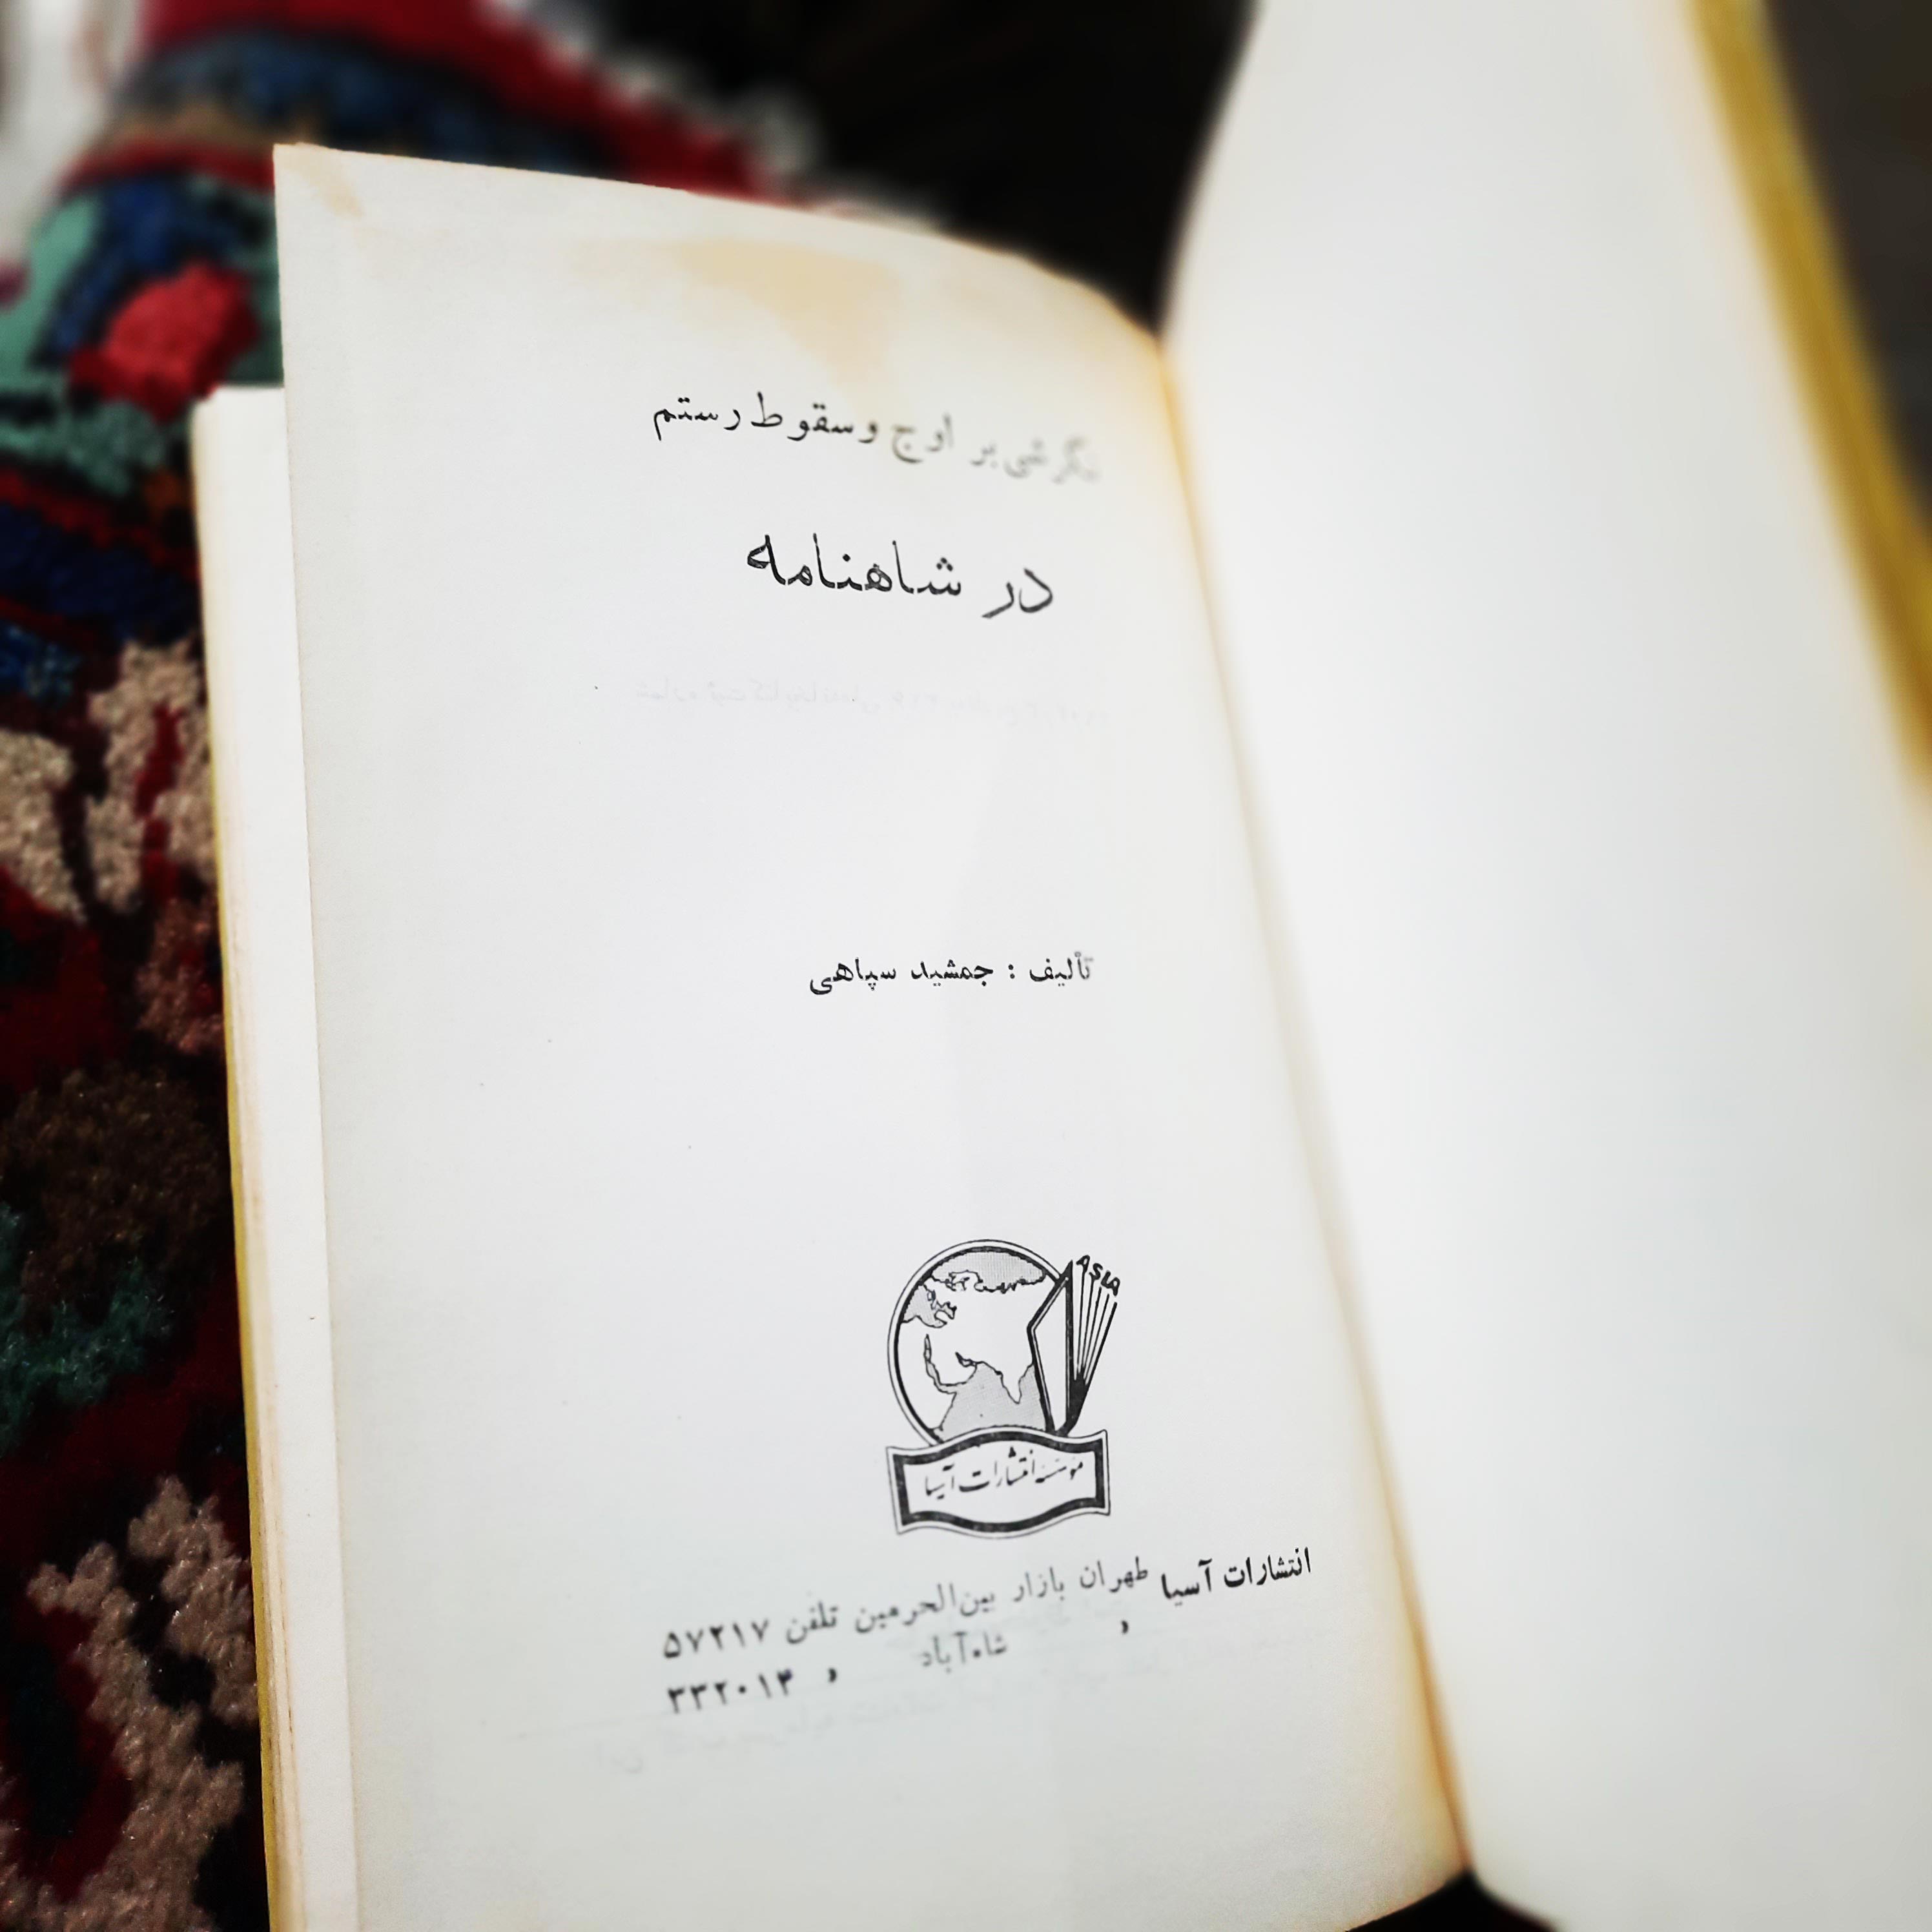 نگرشی بر اوج و سقوط رستم
در شاهنامه
تألیف : جمشید سپاهی
ASIA
مؤسسه انتشارات آسیا
انتشارات آسیا طهران بازار بین‌الحرمین تلفن ۵۷۲۱۷
، شاه‌آباد ، ۳۳۲۰۱۳